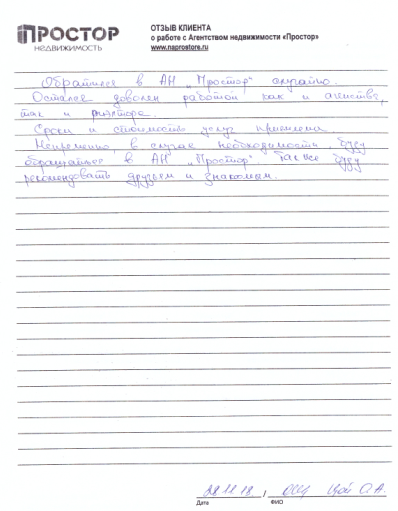 ПРОСТОР
НЕДВИЖИМОСТЬ
ОТЗЫВ КЛИЕНТА
о работе с Агентством недвижимости «Простор»
www.naprostore.ru
Обратился в АН "Простор" случайно.
Остался доволен работой как и агенства,
так и риэлтора.
Сроки и стоимость услуг приемлемы.
Непременно, в случае необходимости, буду
обращаться в АН "Простор". Также буду
рекомендовать друзьям и знакомым.
28.11.18 / Цой О.А.
Дата ФИО